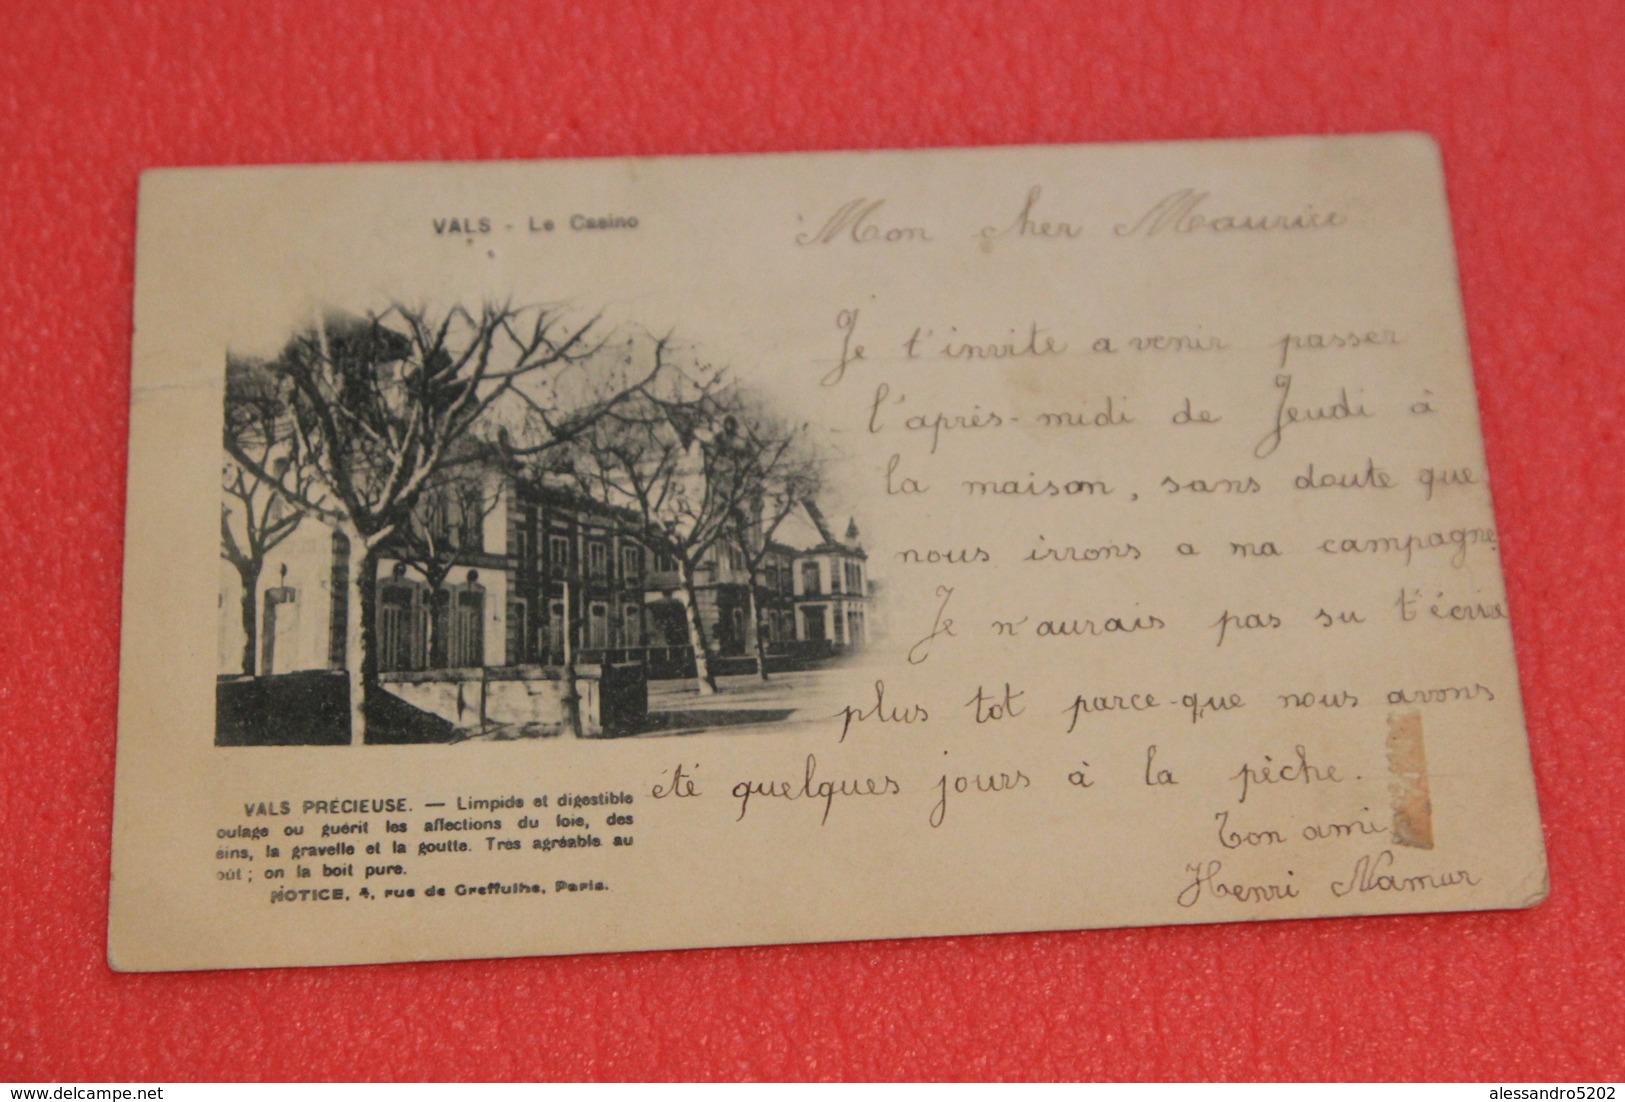 VALS - Le Casino
Mon cher Maurice
Je t'invite a venir passer
l'après-midi de Jeudi à
la maison, sans doute que
nous irrons a ma campagne
Je n'aurais pas su t'écrire
plus tot parce-que nous avons
été quelques jours à la pèche.
Ton ami
Henri Namur
VALS PRÉCIEUSE. — Limpide et digestible
oulage ou guérit les affections du foie, des
eins, la gravelle et la goutte. Très agréable au
oût ; on la boit pure.
NOTICE, 4, rue de Greffulhe, Paris.
delcampe.net
alessandro5202